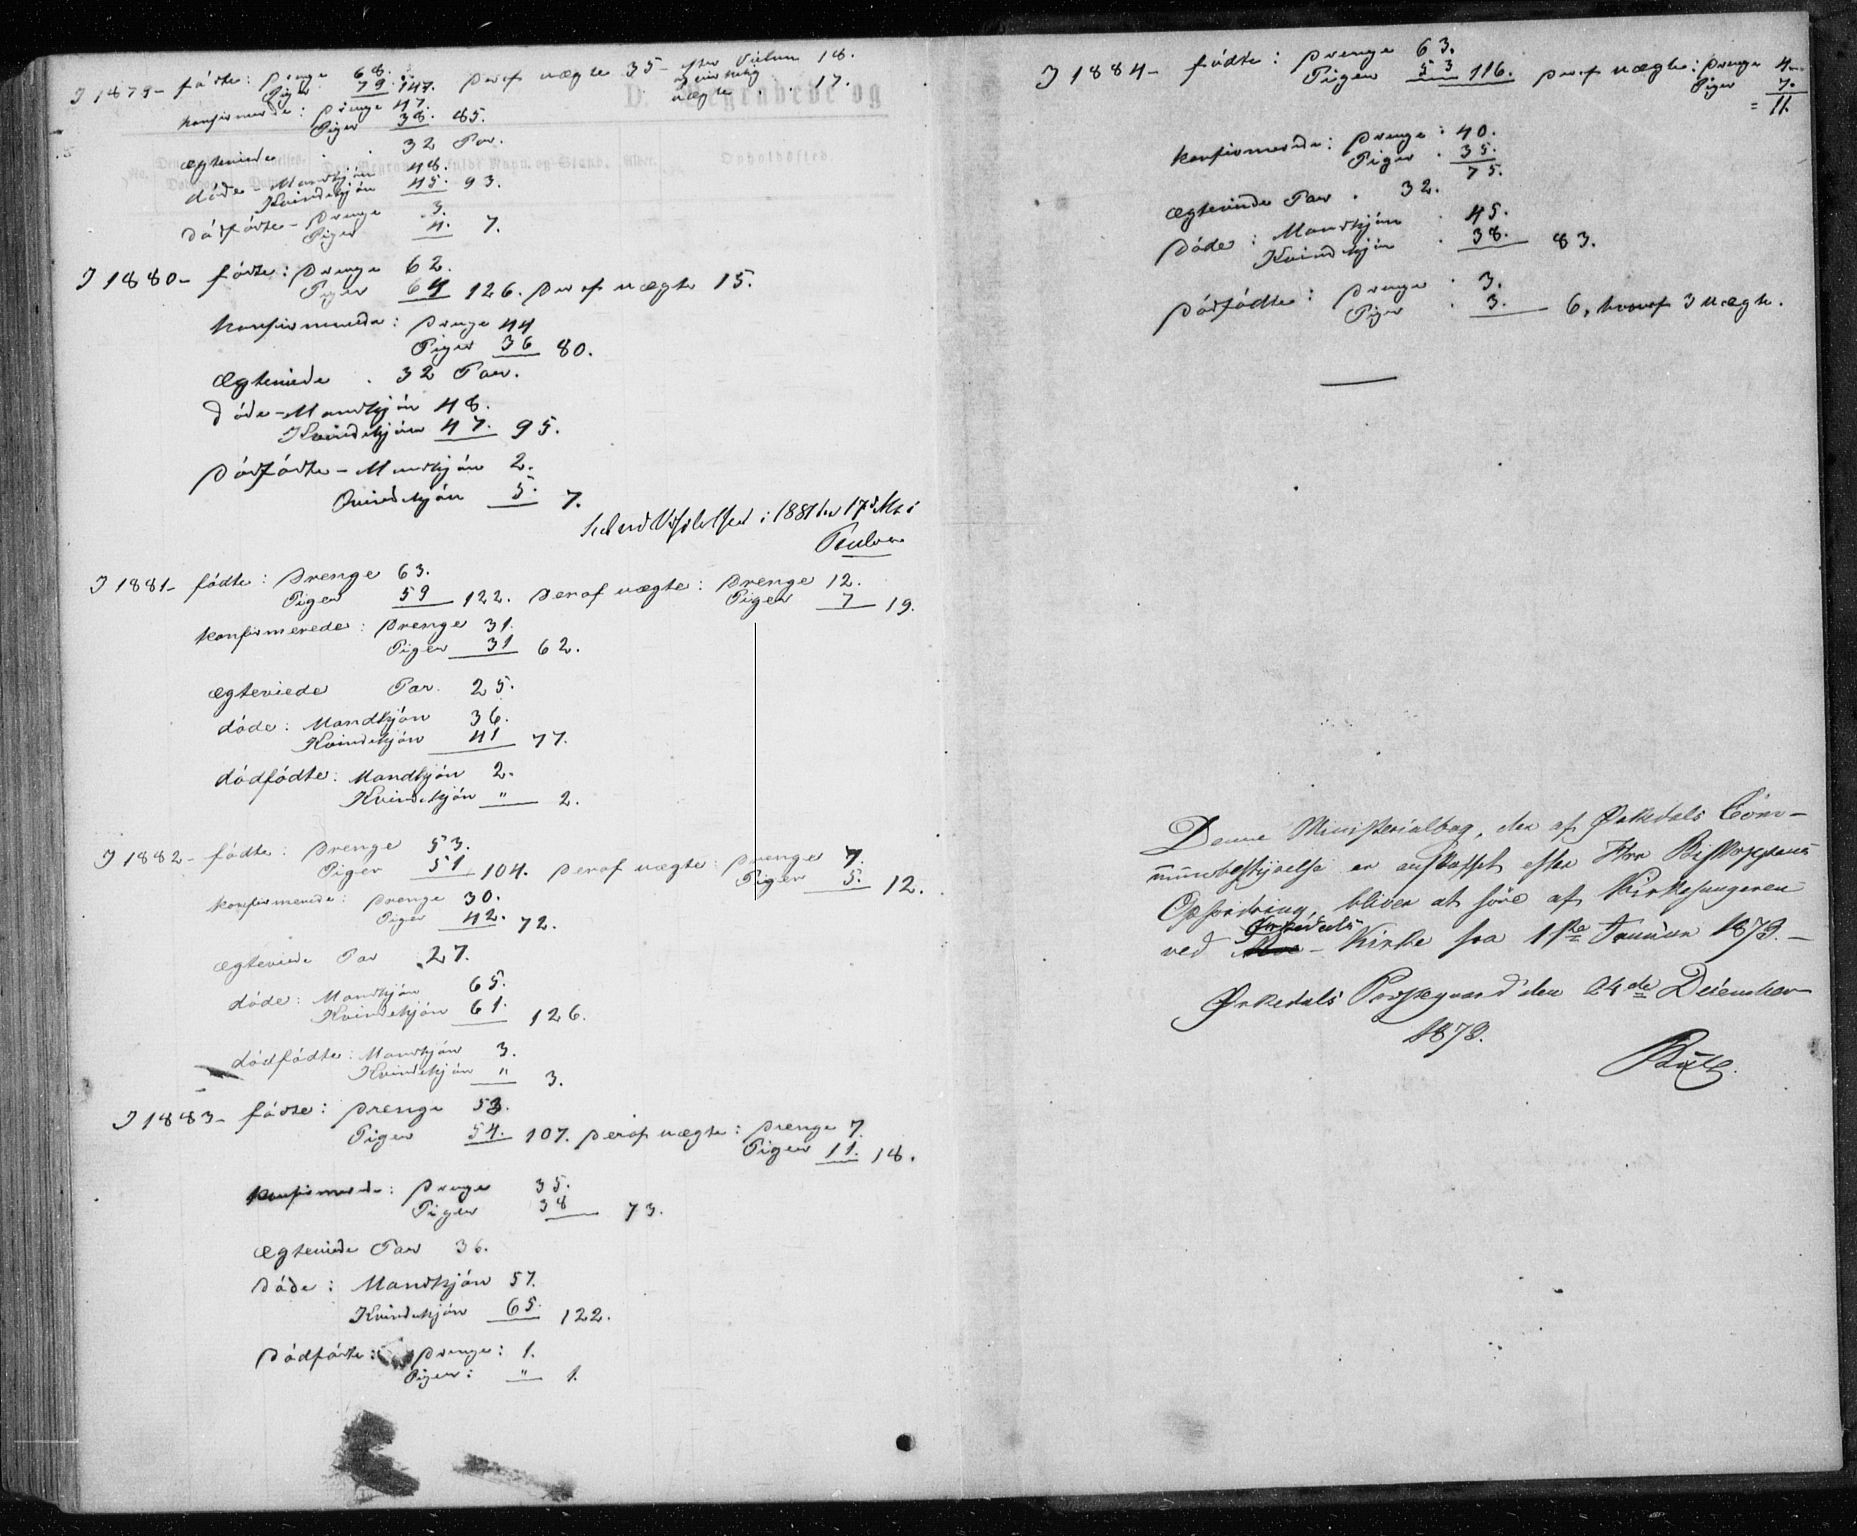 D. Begravede og
I 1879 - födte: Drenge 68.
Piger 79. 147. Deraf uægte 35 -
18.
uægte . . 17.
Konfirmerede: Drenge 47.
Piger 38. 85.
Ægteviede . . 32 Par.
döde - Mandkjön 48.
Kvindekjön 45. 93.
Dödfödte - Drenge 3.
Piger 4. 7.
I 1880 - födte: Drenge 62.
Piger 64 126. Deraf uægte 15.
Konfirmerede: Drenge 44
Piger 36 80.
Ægteviede . 32 Par.
döde - Mandkjön 48.
Kvindekjön 47. 95.
Dödfödte - Mandkjön 2.
Qvindekjön 5. 7.
i 1881 den 17de Mai
I 1881 - födte: Drenge 63.
Piger 59 122. Deraf uægte: Drenge 12.
Piger 7 19.
Konfirmerede: Drenge 31.
Piger 31 62.
Ægteviede Par. 25.
döde: Mandkjön 36.
Kvindekjön 41 77.
dödfödte: Mandkjön 2.
Kvindekjön " 2.
I 1882 - födte: Drenge 53.
Piger 51 104. Deraf uægte: Drenge 7.
Piger 5. 12.
Konfirmerede: Drenge 30.
Piger 42. 72.
Ægteviede Par 27.
döde: Mandkjön 65.
Kvindekjön 61. 126.
dödfödte: Mandkjön 3.
Kvindekjön " 3.
I 1883 - födte: Drenge 53.
Piger 54. 107. Deraf uægte: Drenge 7.
Piger 11. 18.
Konfirmerede: Drenge 35.
Piger 38 73.
Ægteviede Par 36.
Döde: Mandkjön 57.
Kvindekjön 65. 122.
Dödfödte: Drenge: 1.
Piger: " 1.
I 1884 - födte: Drenge 63.
Piger 53 116. Deraf uægte: Drenge 4.
Piger 7.
= 11.
Konfirmerede: Drenge: 40.
Piger . 35.
75.
Ægteviede Par . 32.
Döde: Mandkjön . 45.
Kvindekjön . 38. 83.
Dödfödte: Drenge . 3.
Piger . 3. 6, hvoraf 3 uægte.
Denne Ministerialbog, der af Ørkedals Com-
munebestyrelse er anskaffet efter Hrr Biskoppens
Opfordring, bliver at føre af Kirkesangeren
ved Ørkedals Kirke fra 1ste Januar 1879. -
Ørkedals Præstegaard den 24de December
1878.
Bull.